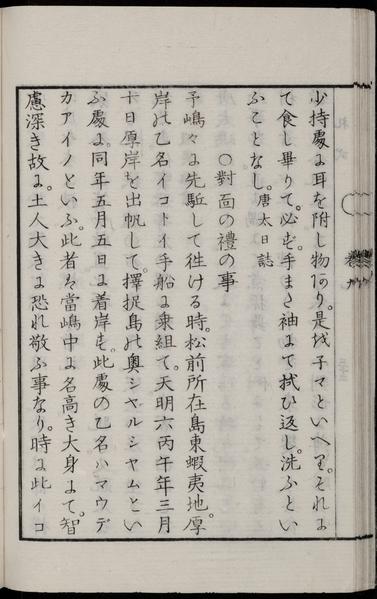 少持處に耳を附し物あり。是を子マといへり。それに
て食し畢りて。必ず手まさ袖にて拭ひ返し。洗ふとい
ふことなし。唐太日誌
○對面の禮の事
予嶋々に先駈して徃ける時。松前所在島東蝦夷地。厚
岸の乙名イコトイ手船に乗組て。天明六丙午年三月
十日厚岸を出帆して。擇捉島の奥シヤルシヤムとい
ふ處に。同年五月五日に着岸す。此處の乙名ハマウデ
カアイノといふ。此者は當嶋中に名高き大身にて。智
慮深き故に。土人大きに恐れ敬ふ事なり。時に此イコ